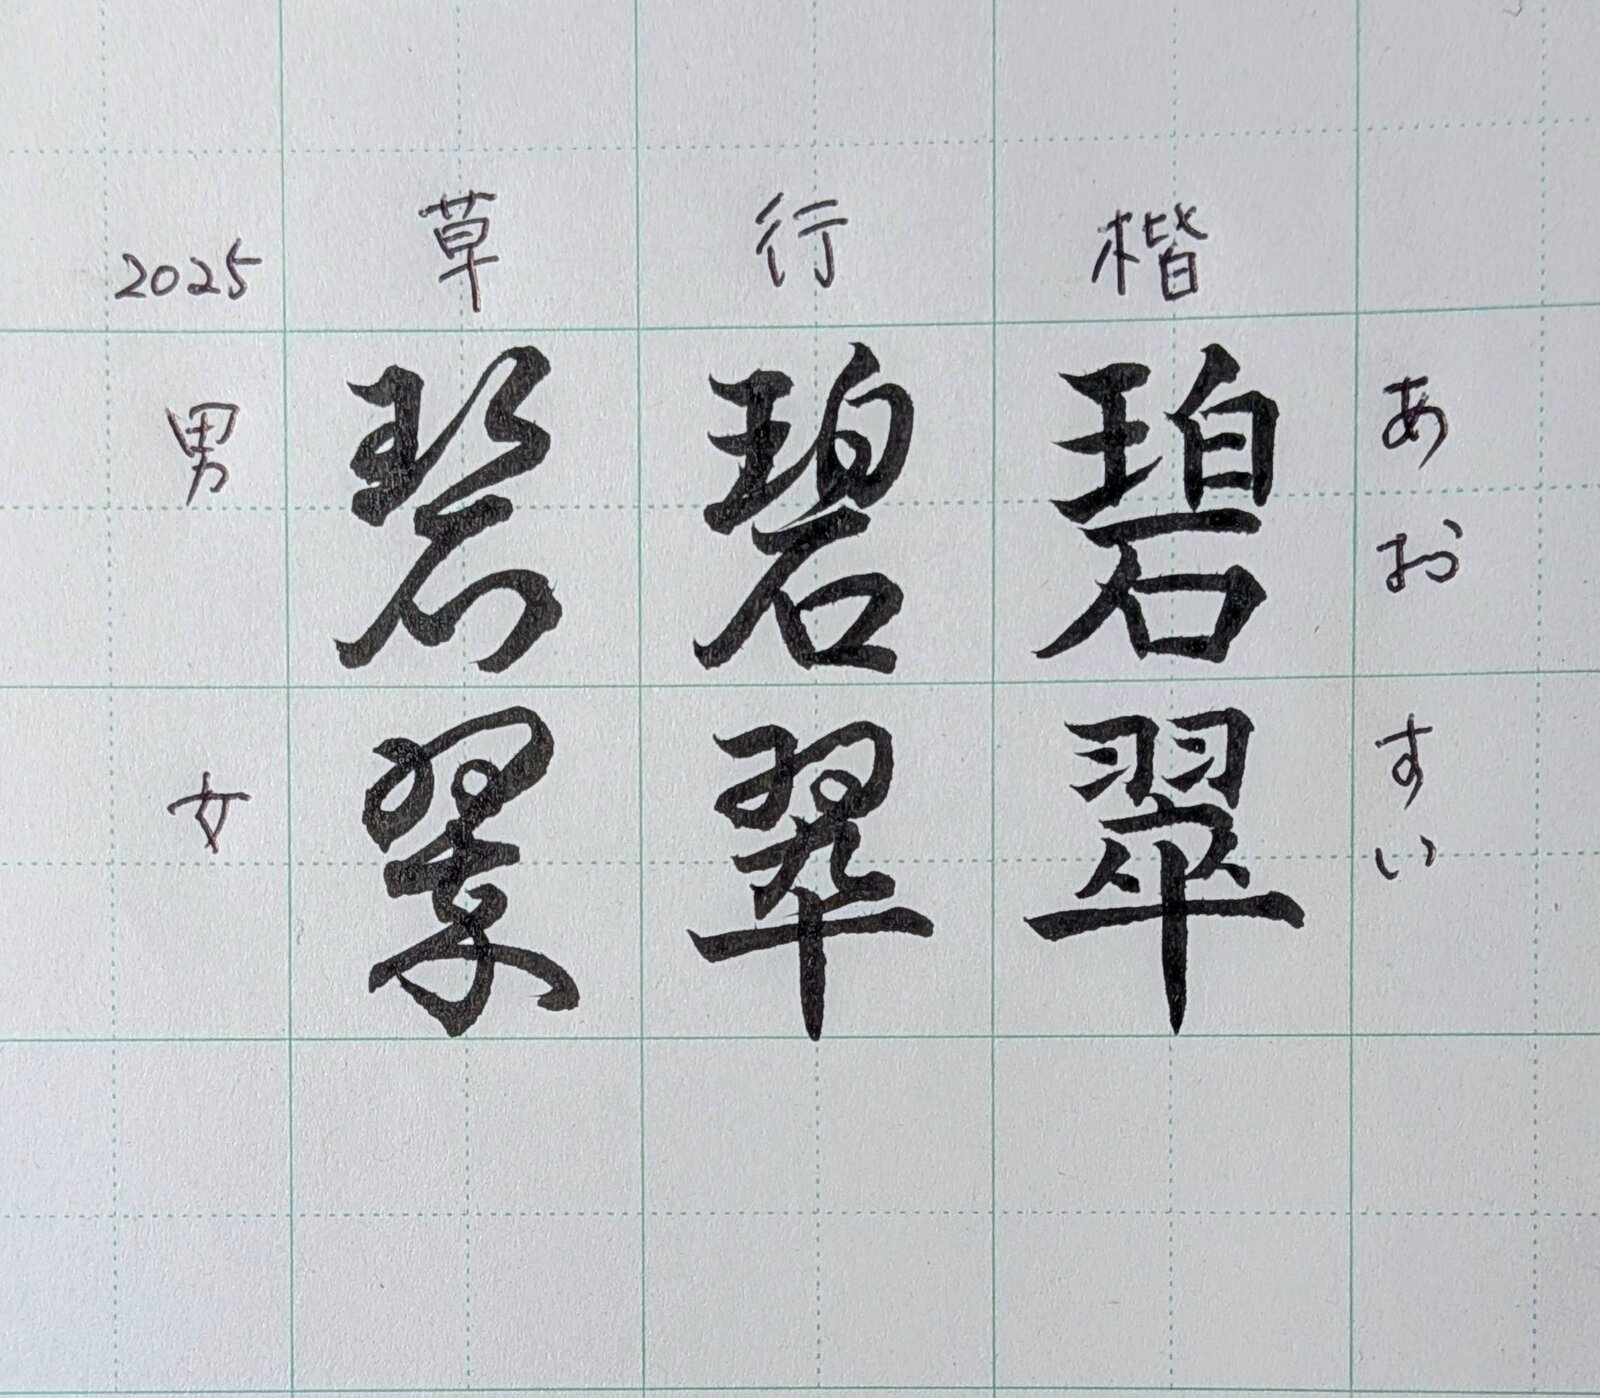 楷 行 草 2025
あお 碧 碧 碧 男
すい 翠 翠 翠 女